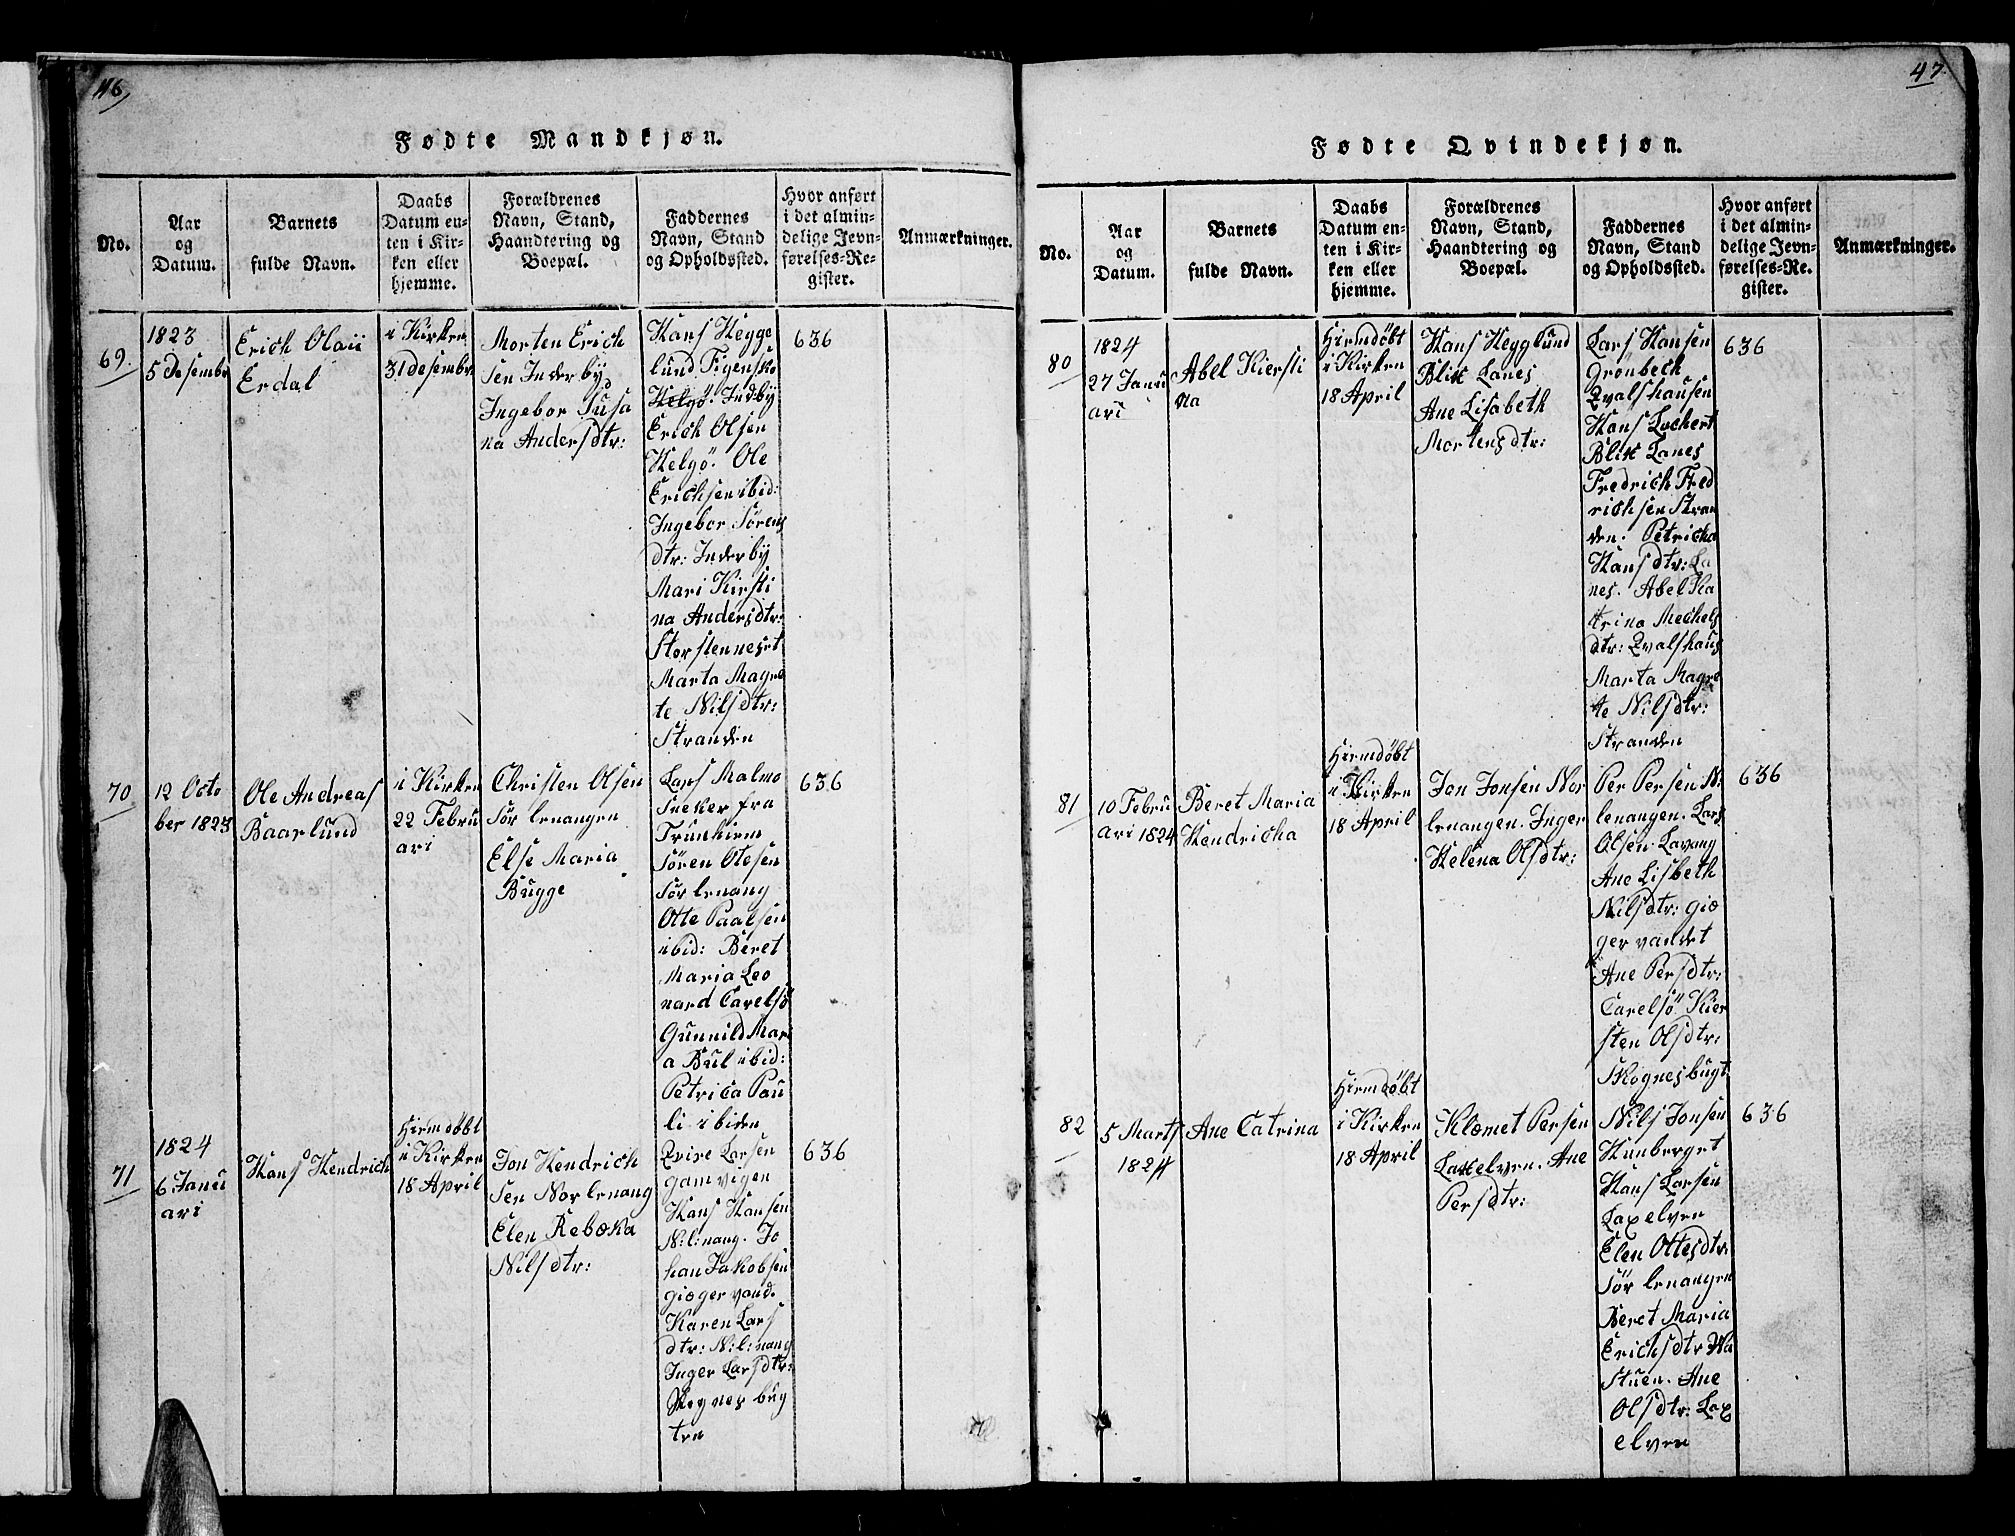 46,
Fødte Mandkjøn.
No.
Aar
og
Datum.
Barnets
fulde Navn.
Daabs
Datum en-
ten i Kir-
ken eller
hjemme.
Forældrenes
Navn, Stand,
Haandtering og
Boepæl.
Faddernes
Navn, Stand
og Opholdssted.
Hvor anført
i det almin-
delige Jevn-
førelses-Re-
gister.
Anmærkninger.
69.
1823
5 Desembr
Erich Olaii
Erdal
i Kirken
31 Desembr
Morten Erich
sen Inderby
Ingebor Susa
na Andersdtr:
Hans Hegge
lund Figenskō
Helgö. Indby
Erich Olsen
Helgö. Ole
Erichsen ibid:
Ingebor Sörens
dtr: Inderby
Mari Kirsti
na Andersdtr:
Storstenneset
Marta Magre
te Nilsdtr:
Stranden
636
70
12 Octo
ber 1823
Ole Andreas
Baarlund
i Kirken
22 Febru
ari
Christen Olsen
Sör lenangen
Else Maria
Bugge
Lars Malmo
Sneker fra
Trunhiem
Sören Otesen
Sör lenang
Otte Paalsen
ibid: Beret
Maria Leo
nard Carelsö
Gunnild Mari
a Bul ibid:
Petrica Pau
li ibiden
636
71
1824
6 Janu
ari
Hans Hendrich
Hiemdöbt
i Kirken
18 April
Jon Hendrich
sen Nor lenang
Elen Rebæka
Nilsdtr:
Qvire Larsen
gamvigen
Hans Hansen
N:l:nang. Jo
han Jakobsen
giæger vand.
Karen Lars
dtr: N:l:nang
Inger Larsdtr:
Skognes bug
ten
636
47
Fødte Qvindekjøn.
No.
Aar
og
Datum.
Barnets
fulde Navn.
Daabs
Datum en-
ten i Kir-
ken eller
hjemme.
Forældrenes
Navn, Stand,
Haandtering og
Boepæl.
Faddernes
Navn, Stand
og Opholdsted.
Hvor anført
i det almin-
delige Jevn-
førelses-Re-
gister.
Anmærkninger.
80
1824
27 Janu
ari
Abel Kiersti
na
Hiemdöbt
i Kirken
18 April
Hans Hegglund
Blik Lanes
Ane Lisabeth
Mortensdtr:
Lars Hansen
Grönbech
Qvalshausen
Hans Lochert
Blik Lanes
Fredrich Fred
richsen Stran
den. Petricha
Hansdtr: La
nes. Abel Ka
trina Mechels
dtr: Qvalshaus
Marta Magre
te Nilsdtr:
Stranden
636
81
10 Febru
ari 1824
Beret Maria
Hendricha
Hiemdöbt
i Kirken
18 April
Jon Jonsen Nor
lenangen. Inger
Helena Olsdtr:
Per Persen N:
lenangen. Lars
Olsen Lavang
Ane Lisbeth
Nilsdtr: giæ
ger vandet
Ane Persdtr:
Carelsö Kier
sten Olsdtr:
Skognesbugt.
636
82
5 Marts
1824
Ane Catrina
Hiemdöbt
i Kirken
18 April
Klæmet Persen
Laxelven. Ane
Persdtr:
Nils Jonsen
Hunberget
Hans Larsen
Laxelven
Elen Ottesdtr:
Sör lenangen
Beret Maria
Erichsdtr Wa
stuen. Ane
Olsdtr: Lax
elven
636